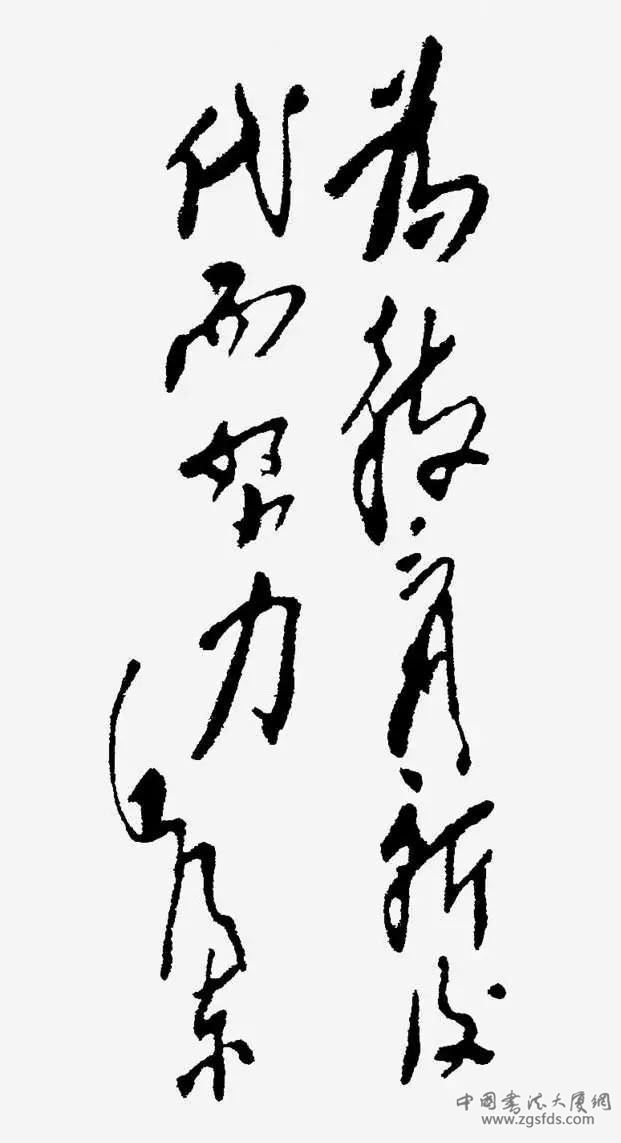 为教育新後
代而努力
毛泽东
中國書法大廈網
www.zgsfds.com